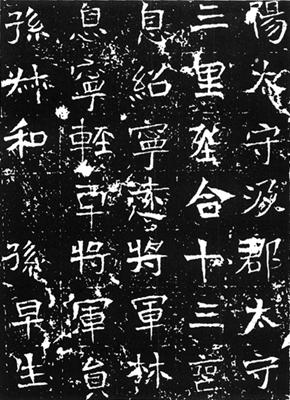 陽太守涿郡太守
三里合十三
息紹寧遠將軍林
息寧輕車將軍員
孫和 孫早生